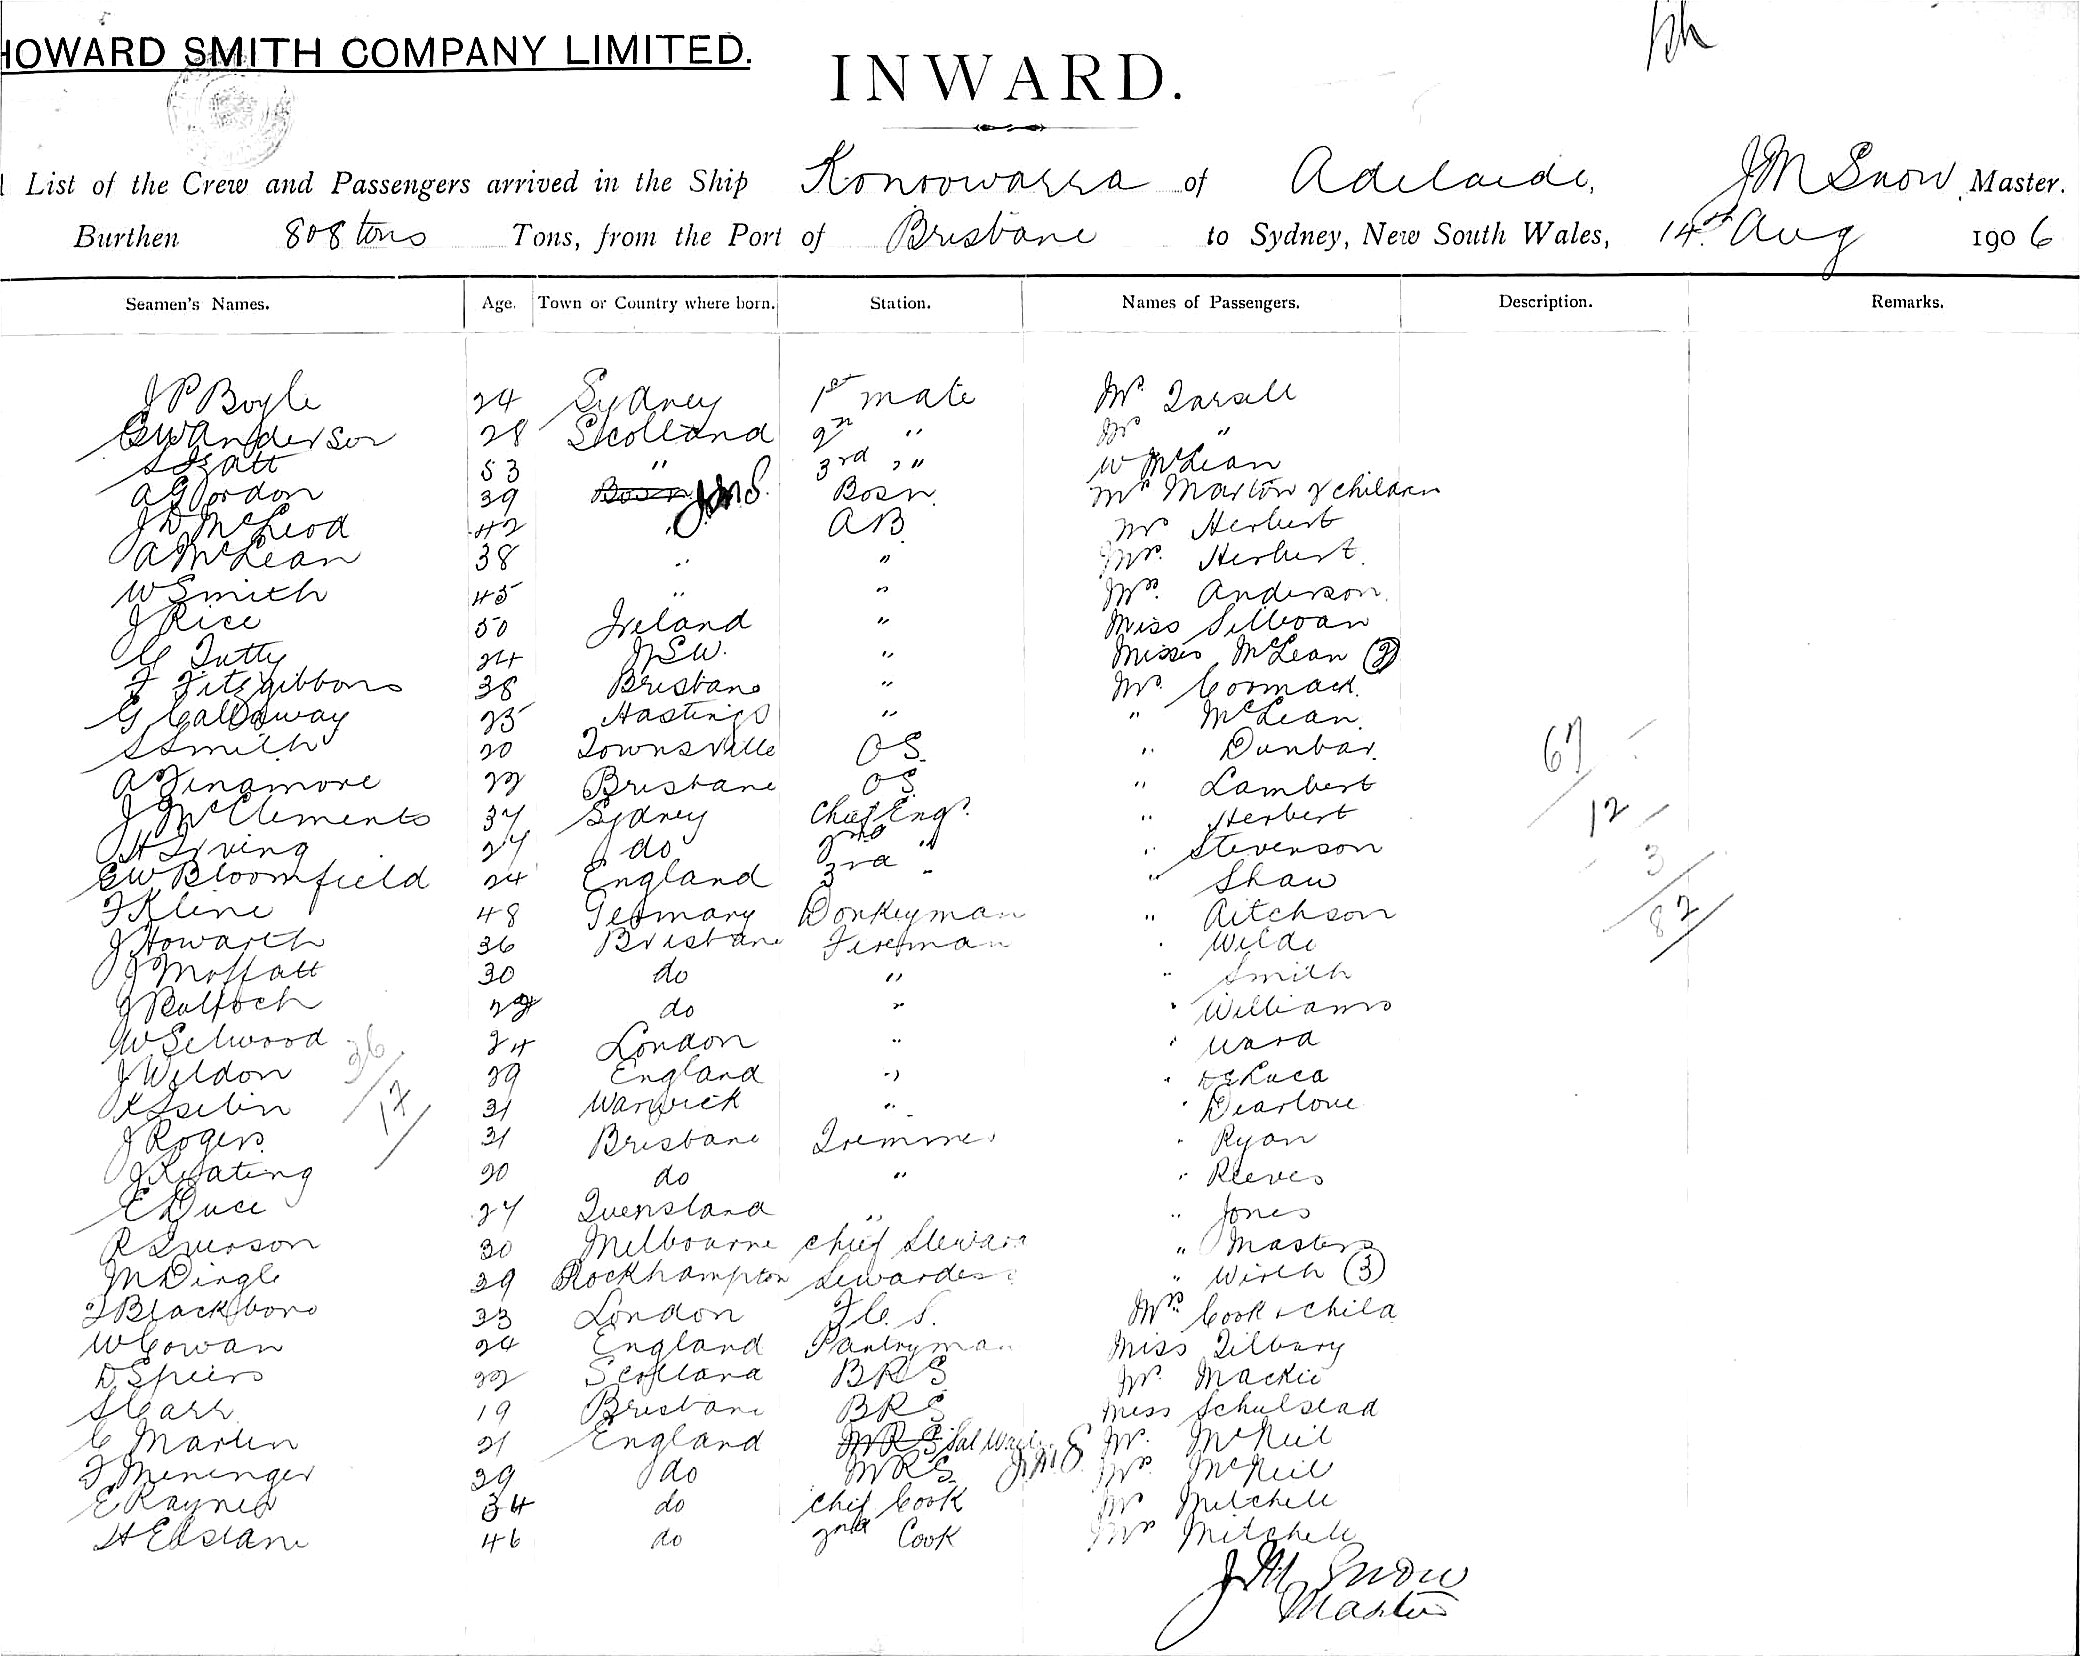 HOWARD SMITH COMPANY LIMITED.
INWARD.
List of the Crew and Passengers arrived in the Ship Konoowarra of Adelaide, J M Snow Master.
Burthen 808 tons Tons, from the Port of Brisbane to Sydney, New South Wales, 14th Aug 1906
Seamen's Names. Age. Town or Country where born. Station. Names of Passengers. Description. Remarks.
J P Boyle 24 Sydney 1st mate Mr Tarsell
G W Anderson 28 Scotland 2nd " Mrs "
53 " 3rd " W McLean
A Gordon 39 Bosn J.M.S. Bosn Mrs Marton & children
J D McLeod 42 " AB Mr Herbert
A McLean 38 " " Mrs Herbert
W Smith 45 " " Mrs Anderson
J Rice 50 Ireland " Miss
C Tutty 24 N.S.W. " Misses McLean (2)
F Fitzgibbons 38 Brisbane " Mr Cormack
G Callaway 25 Hastings " " McLean
S Smith 20 Townsville OS " Dunbar
A Finamore 22 Brisbane OS " Lambert 67
J McClements 37 Sydney Chief Engr " Herbert 12
H Irving 27 do 2nd " " Stevenson 3
G W Bloomfield 24 England 3rd " " Shaw
F Kline 48 Germany Donkeyman " Aitchson 82
J Howarth 36 Brisbane Fireman " Wilde
J Moffatt 30 do " " Smith
J 22 do " " Williams
W Selwood 24 London " " Ward
J Weldon 29 England " " De Luca 26
31 Warwick " " Dearlove 12
J Rogers 31 Brisbane Trimmer " Ryan
J Keating 20 do " " Reeves
E Duce 27 Queensland " " Jones
R Iverson 30 Melbourne Chief Steward " Masters
M Dingle 29 Rockhampton Stewardess " Wirth (3)
F Blackboro 33 London F.C.S. Mrs Cook & child
W Cowan 24 England Pantryman Miss Tilbury
D Speirs 22 Scotland BRS Mr Mackie
S Carr 19 Brisbane BRS Miss Schulstad
C Martin 21 England MRS Sal Waiter J.M.S Mr McNeil
F Meninger 29 do MRS Mrs McNeil
E Rayner 34 do Chief Cook Mr Mitchell
H 46 do 2nd Cook Mrs Mitchell
J M Snow
Master